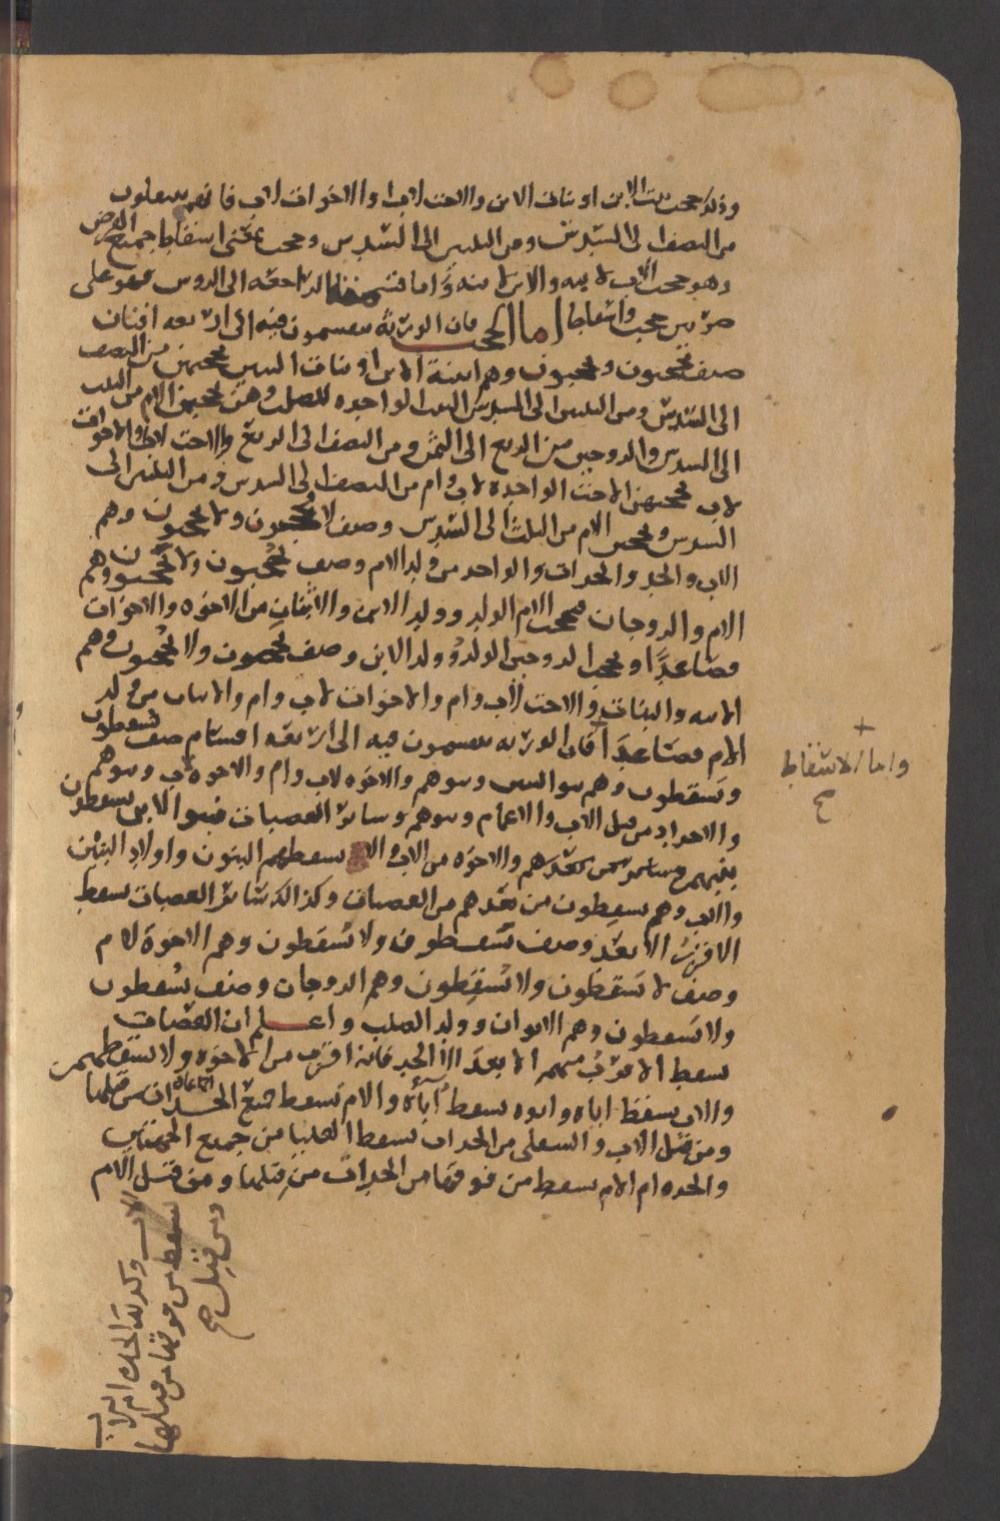 وذلك كحجب بنت الابن او بنات الابن والاخت لاب او الاخوات لاب فانهم ينتقلون
من النصف الى السدس ومن الثلثين الى السدس وحجب بمعنى اسقاط جميع الفرض
وهو حجب الاب لابيه والابن لابنه واما قسمة الراجعه الى الروس فهو على
ضربين حجب واسقاط اما الحجب فان الورثة ينقسمون فيه الى اربعه اقسام
صنف يحجبون ويحجبون وهم ابنة الابن او بنات الابن يحجبهن من النصف
الى السدس ومن الثلثين الى السدس البنت الواحده للصلب وهن يحجبن الام من الثلث
الى السدس والزوجين من الربع الى الثمن ومن النصف الى الربع والاخت لاب والاخوات
لاب تحجبهن الاخت الواحده لاب وام من النصف الى السدس ومن الثلثين الى
السدس ويحجبن الام من الثلث الى السدس وصنف لا يحجبون ولا يحجبون وهم
الاب والجد والجدات والواحد من ولد الام وصنف يحجبون ولا يحجبون وهم
الام والزوجان يحجب الام الولد وولد الابن والاثنان من الاخوه والاخوات
فصاعدًا ويحجب الزوجين الولد وولد الابن وصنف يحجبون ولا يحجبون وهم
الابنه والبنات والاخت لاب وام والاخوات لاب وام والاثنان من ولد
الام فصاعدًا فان الورثه ينقسمون فيه الى اربعه اقسام صنف يسقطون
ويسقطون وهم بنوا البنين وبنوهم والاخوه لاب وام والاخوه لاب وبنوهم
والاجداد من قبل الاب والاعمام وبنوهم وسائر العصبات فبنوا الابن يسقطون
بنيهم ومن بعدهم والاخوه من الاب والام يسقطهم البنون واولاد البنين
والاب وهم يسقطون من بعدهم من العصبات وكذالك سائر العصبات يسقط
الاقرب الابعد وصنف يسقطون ولا يسقطون وهم الاخوة لام
وصنف لا يسقطون ولا يسقطون وهم الزوجان وصنف يسقطون
ولا يسقطون وهم الابوان وولد الصلب واعلم ان العصبات
يسقط الاقرب منهم الابعد الا الجد فانه اقرب من الاخوه ولا يسقطهم
والاب يسقط اباه وابوه يسقط آبائه والام تسقط جميع الجدات من قبلها
ومن قبل الاب والسفلى من الجدات تسقط العليا من جميع الجهتين
والجده ام الام تسقط من فوقها من الجدات من قبلها ومن قبل الام
واما الاسقاط
صح
الاب وكذلك الجده ام الاب
تسقط من فوقها من قبلها
ومن قبل صح